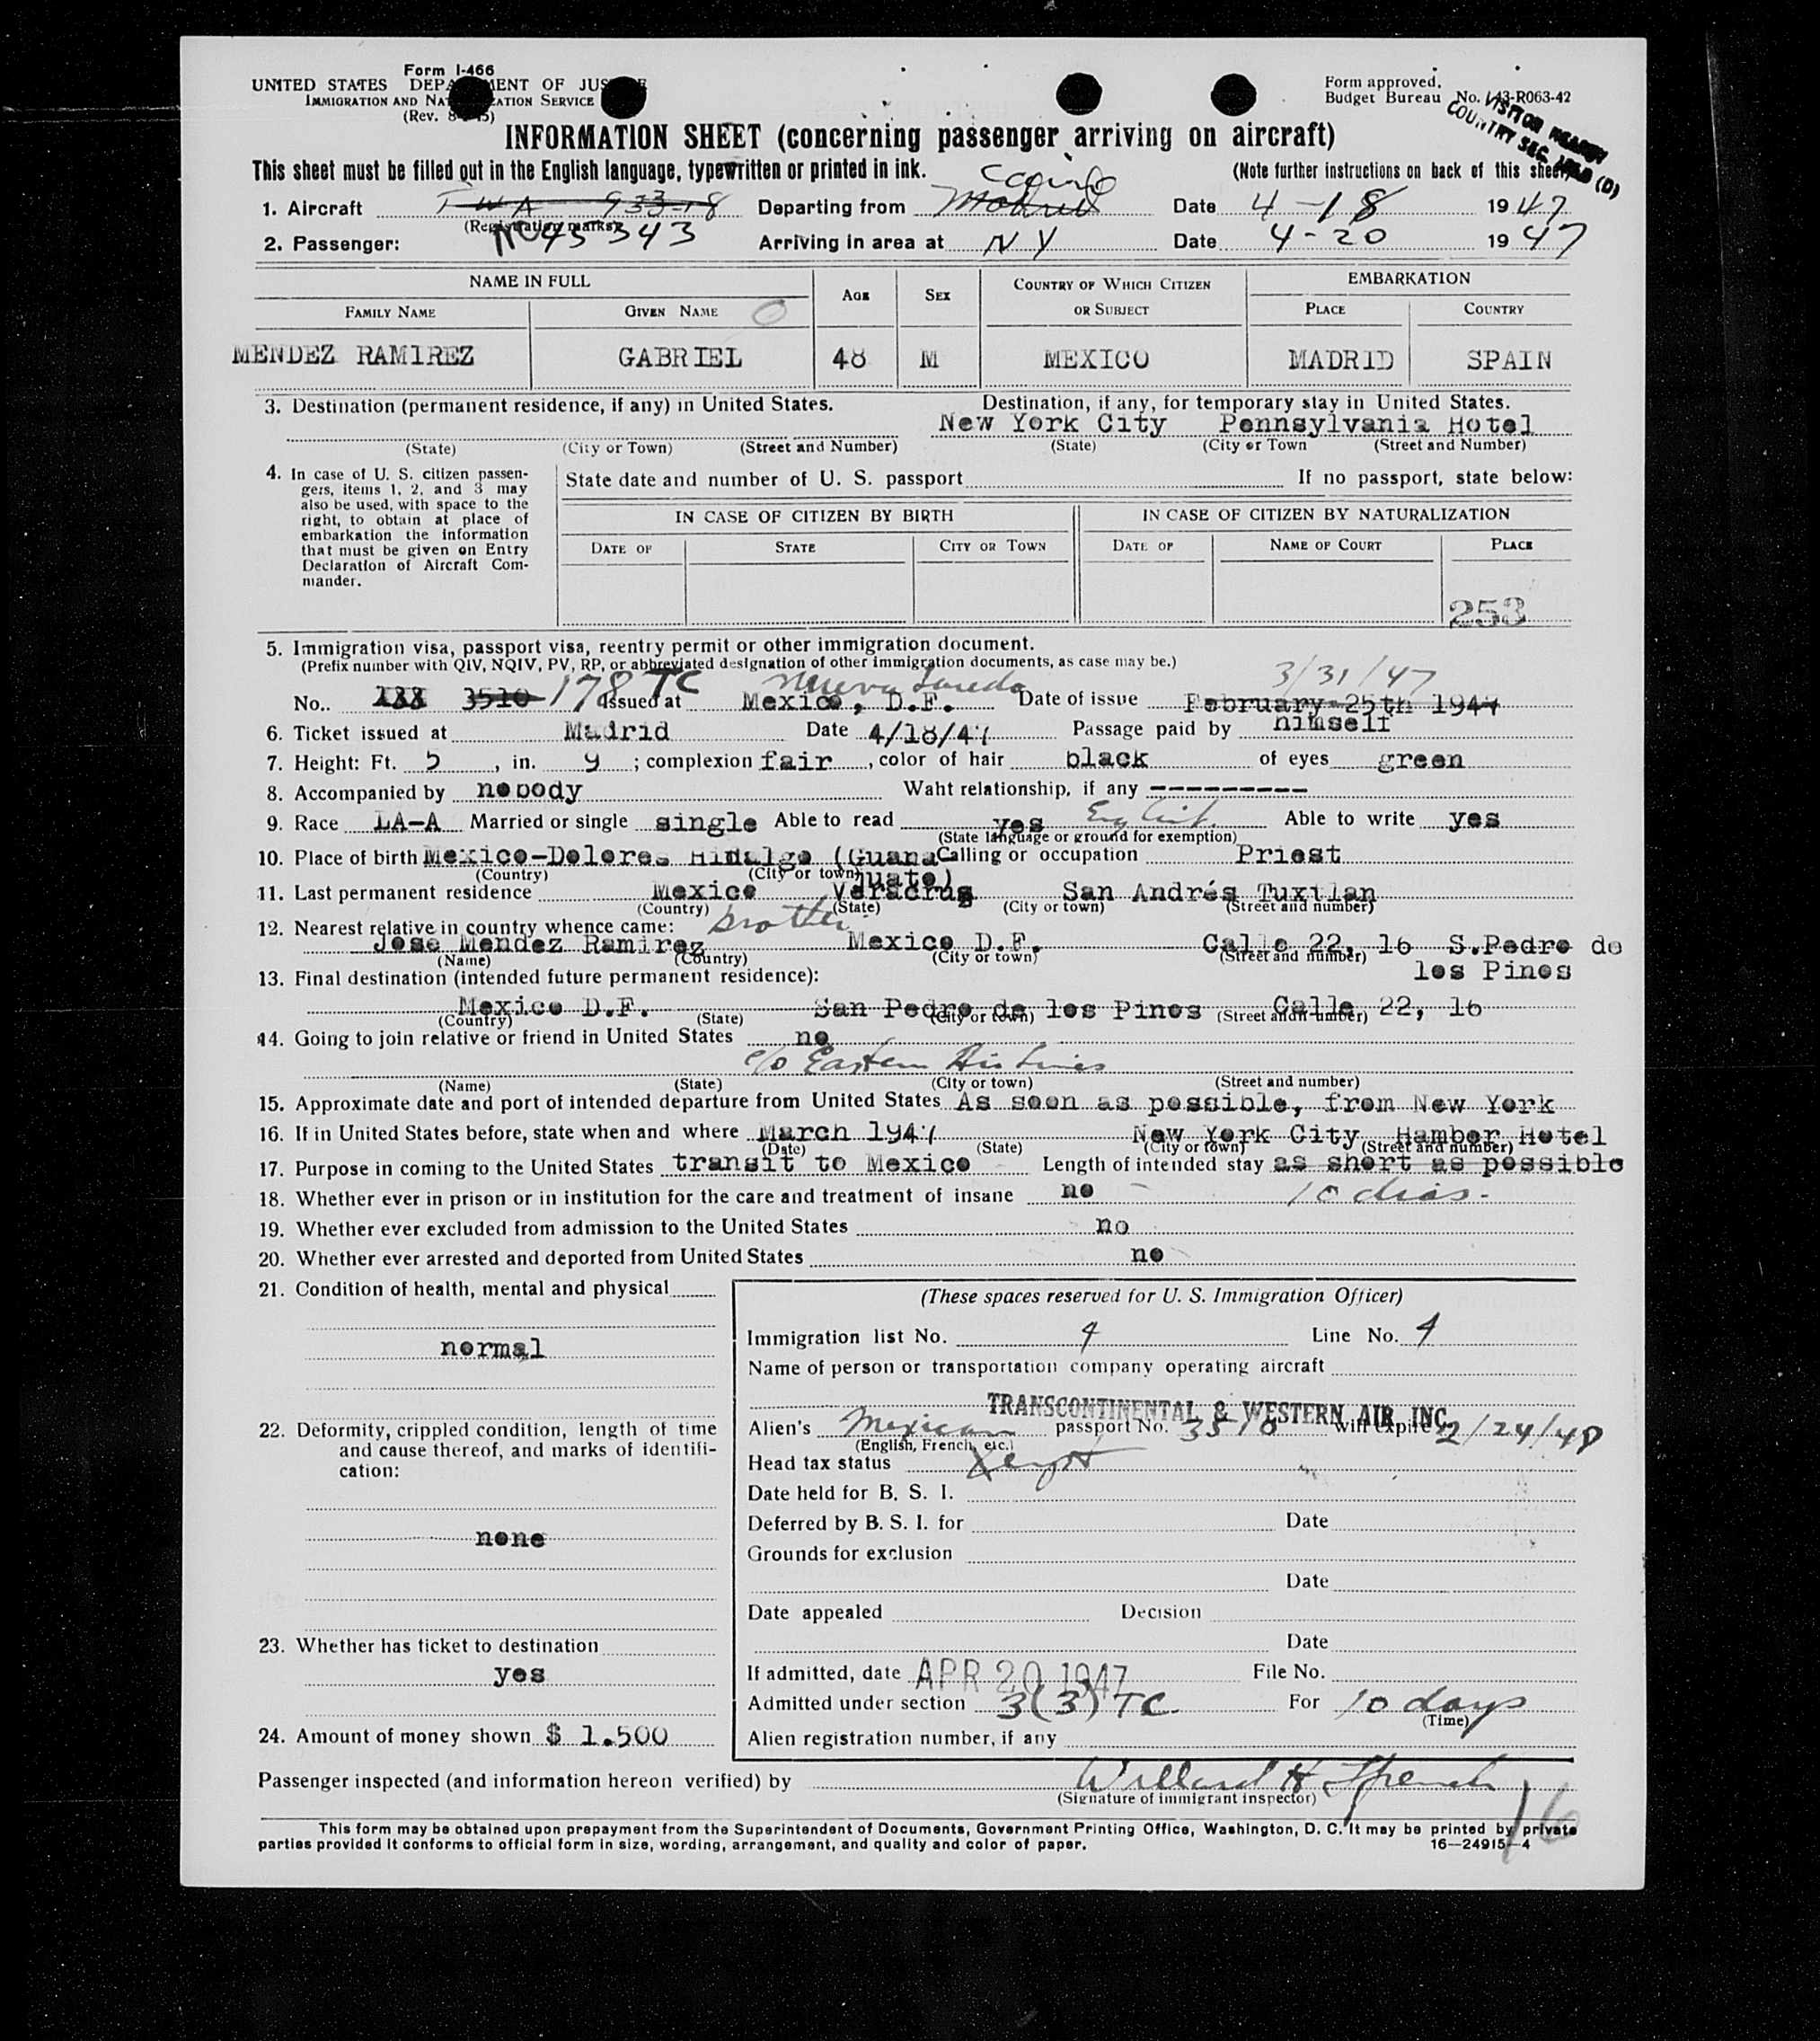 Form I-466
UNITED STATES DEPARTMENT OF JUSTICE
IMMIGRATION AND NATURALIZATION SERVICE
(Rev. 8- -45)
Form approved.
Budget Bureau No. 43-R063-42
VISITOR
COUNTRY SEC. (D)
INFORMATION SHEET (concerning passenger arriving on aircraft)
This sheet must be filled out in the English language, typewritten or printed in ink. (Note further instructions on back of this sheet)
Cairo
1. Aircraft TWA 933-18 Departing from Madrid Date 4-18 1947
(Registration marks)
2. Passenger: NC 45343 Arriving in area at NY Date 4-20 1947
NAME IN FULL AGE SEX COUNTRY OF WHICH CITIZEN OR SUBJECT EMBARKATION
FAMILY NAME GIVEN NAME PLACE COUNTRY
MENDEZ RAMIREZ GABRIEL 48 M MEXICO MADRID SPAIN
3. Destination (permanent residence, if any) in United States. Destination, if any, for temporary stay in United States.
New York City Pennsylvania Hotel
(State) (City or Town) (Street and Number) (State) (City or Town (Street and Number)
4. In case of U. S. citizen passen-
gers, items 1, 2, and 3 may
also be used, with space to the
right, to obtain at place of
embarkation the information
that must be given on Entry
Declaration of Aircraft Com-
mander.
State date and number of U. S. passport If no passport, state below:
IN CASE OF CITIZEN BY BIRTH IN CASE OF CITIZEN BY NATURALIZATION
DATE OF STATE CITY OR TOWN DATE OF NAME OF COURT PLACE
253
5. Immigration visa, passport visa, reentry permit or other immigration document.
(Prefix number with QIV, NQIV, PV, RP, or abbreviated designation of other immigration documents, as case may be.)
Nueva Laredo 3/31/47
No. 3510 178 TC Issued at Mexico, D.F. Date of issue February 25th 1947
6. Ticket issued at Madrid Date 4/18/47 Passage paid by himself
7. Height: Ft. 5, in. 9; complexion fair, color of hair black of eyes green
8. Accompanied by nobody Waht relationship, if any ----------
9. Race LA-A Married or single single Able to read yes Able to write yes
(State language or ground for exemption)
10. Place of birth Mexico-Dolores Hidalgo (Guana Calling or occupation Priest
(Country) (City or town) juato)
11. Last permanent residence Mexico Veracruz San Andrés Tuxtlan
(Country) (State) (City or town) (Street and number)
12. Nearest relative in country whence came: brother
Jose Mendez Ramirez Mexico D.F. Calle 22, 16 S.Pedro de
(Name) (Country) (City or town) (Street and number)
los Pinos
13. Final destination (intended future permanent residence):
Mexico D.F. San Pedro de los Pinos Calle 22, 16
(Country) (State) (City or town) (Street and number)
14. Going to join relative or friend in United States no
c/o Eastern Air Lines
(Name) (State) (City or town) (Street and number)
15. Approximate date and port of intended departure from United States As soon as possible, from New York
16. If in United States before, state when and where March 1947 New York City Hamber Hotel
(Date) (State) (City or town) (Street and number)
17. Purpose in coming to the United States transit to Mexico Length of intended stay as short as possible
18. Whether ever in prison or in institution for the care and treatment of insane no 10 dias.
19. Whether ever excluded from admission to the United States no
20. Whether ever arrested and deported from United States no
21. Condition of health, mental and physical
normal
22. Deformity, crippled condition, length of time
and cause thereof, and marks of identifi-
cation:
none
23. Whether has ticket to destination
yes
24. Amount of money shown $ 1.500
(These spaces reserved for U. S. Immigration Officer)
Immigration list No. 4 Line No. 4
Name of person or transportation company operating aircraft
TRANSCONTINENTAL & WESTERN AIR, INC.
Alien's Mexican passport No. 3510 will expire 2/24/48
(English, French, etc.)
Head tax status
Date held for B. S. I.
Deferred by B. S. I. for Date
Grounds for exclusion
Date
Date appealed Decision
Date
If admitted, date APR 20 1947 File No.
Admitted under section 3(3) TC. For 10 days
(Time)
Alien registration number, if any
Passenger inspected (and information hereon verified) by Willard H.
(Signature of immigrant inspector)
16
This form may be obtained upon prepayment from the Superintendent of Documents, Government Printing Office, Washington, D. C. It may be printed by private
parties provided it conforms to official form in size, wording, arrangement, and quality and color of paper. 16—24915-4